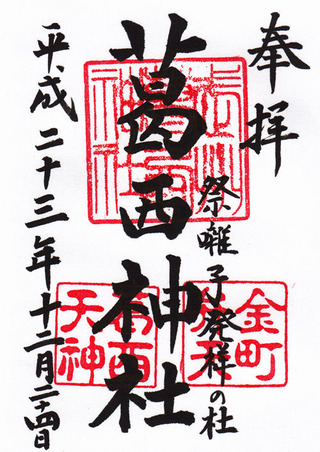 奉拝
祭囃子発祥の杜
葛西神社
平成二十三年十二月二十四日
金町
葛西
天神